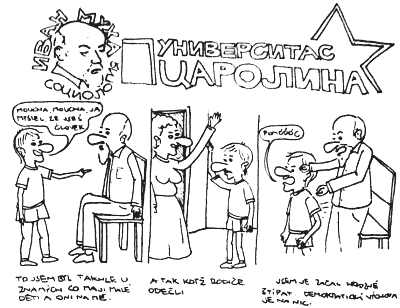 ИВАН МУХА
СОЦИОЛОГ
УНИВЕРСИТАС
ЦАРОЛИНА
MOUCHA, MOUCHA, JÁ
MYSLEL ŽE JSEŠ
ČLOVĚK
POMÓÓÓC
TO JSEM BYL TAKHLE U
ZNÁMÝCH CO MAJÍ MALÉ
DĚTI A ONI NA MĚ.
A TAK KDYŽ RODIČE
ODEŠLI
JSEM JE ZAČAL HROZNĚ
ŠTÍPAT DEMOKRATICKÁ VÝCHOVA
JE NA NIC.